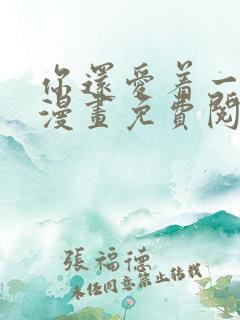 你還愛着一
漫畫免費閱
張福德
未经同意禁止转载